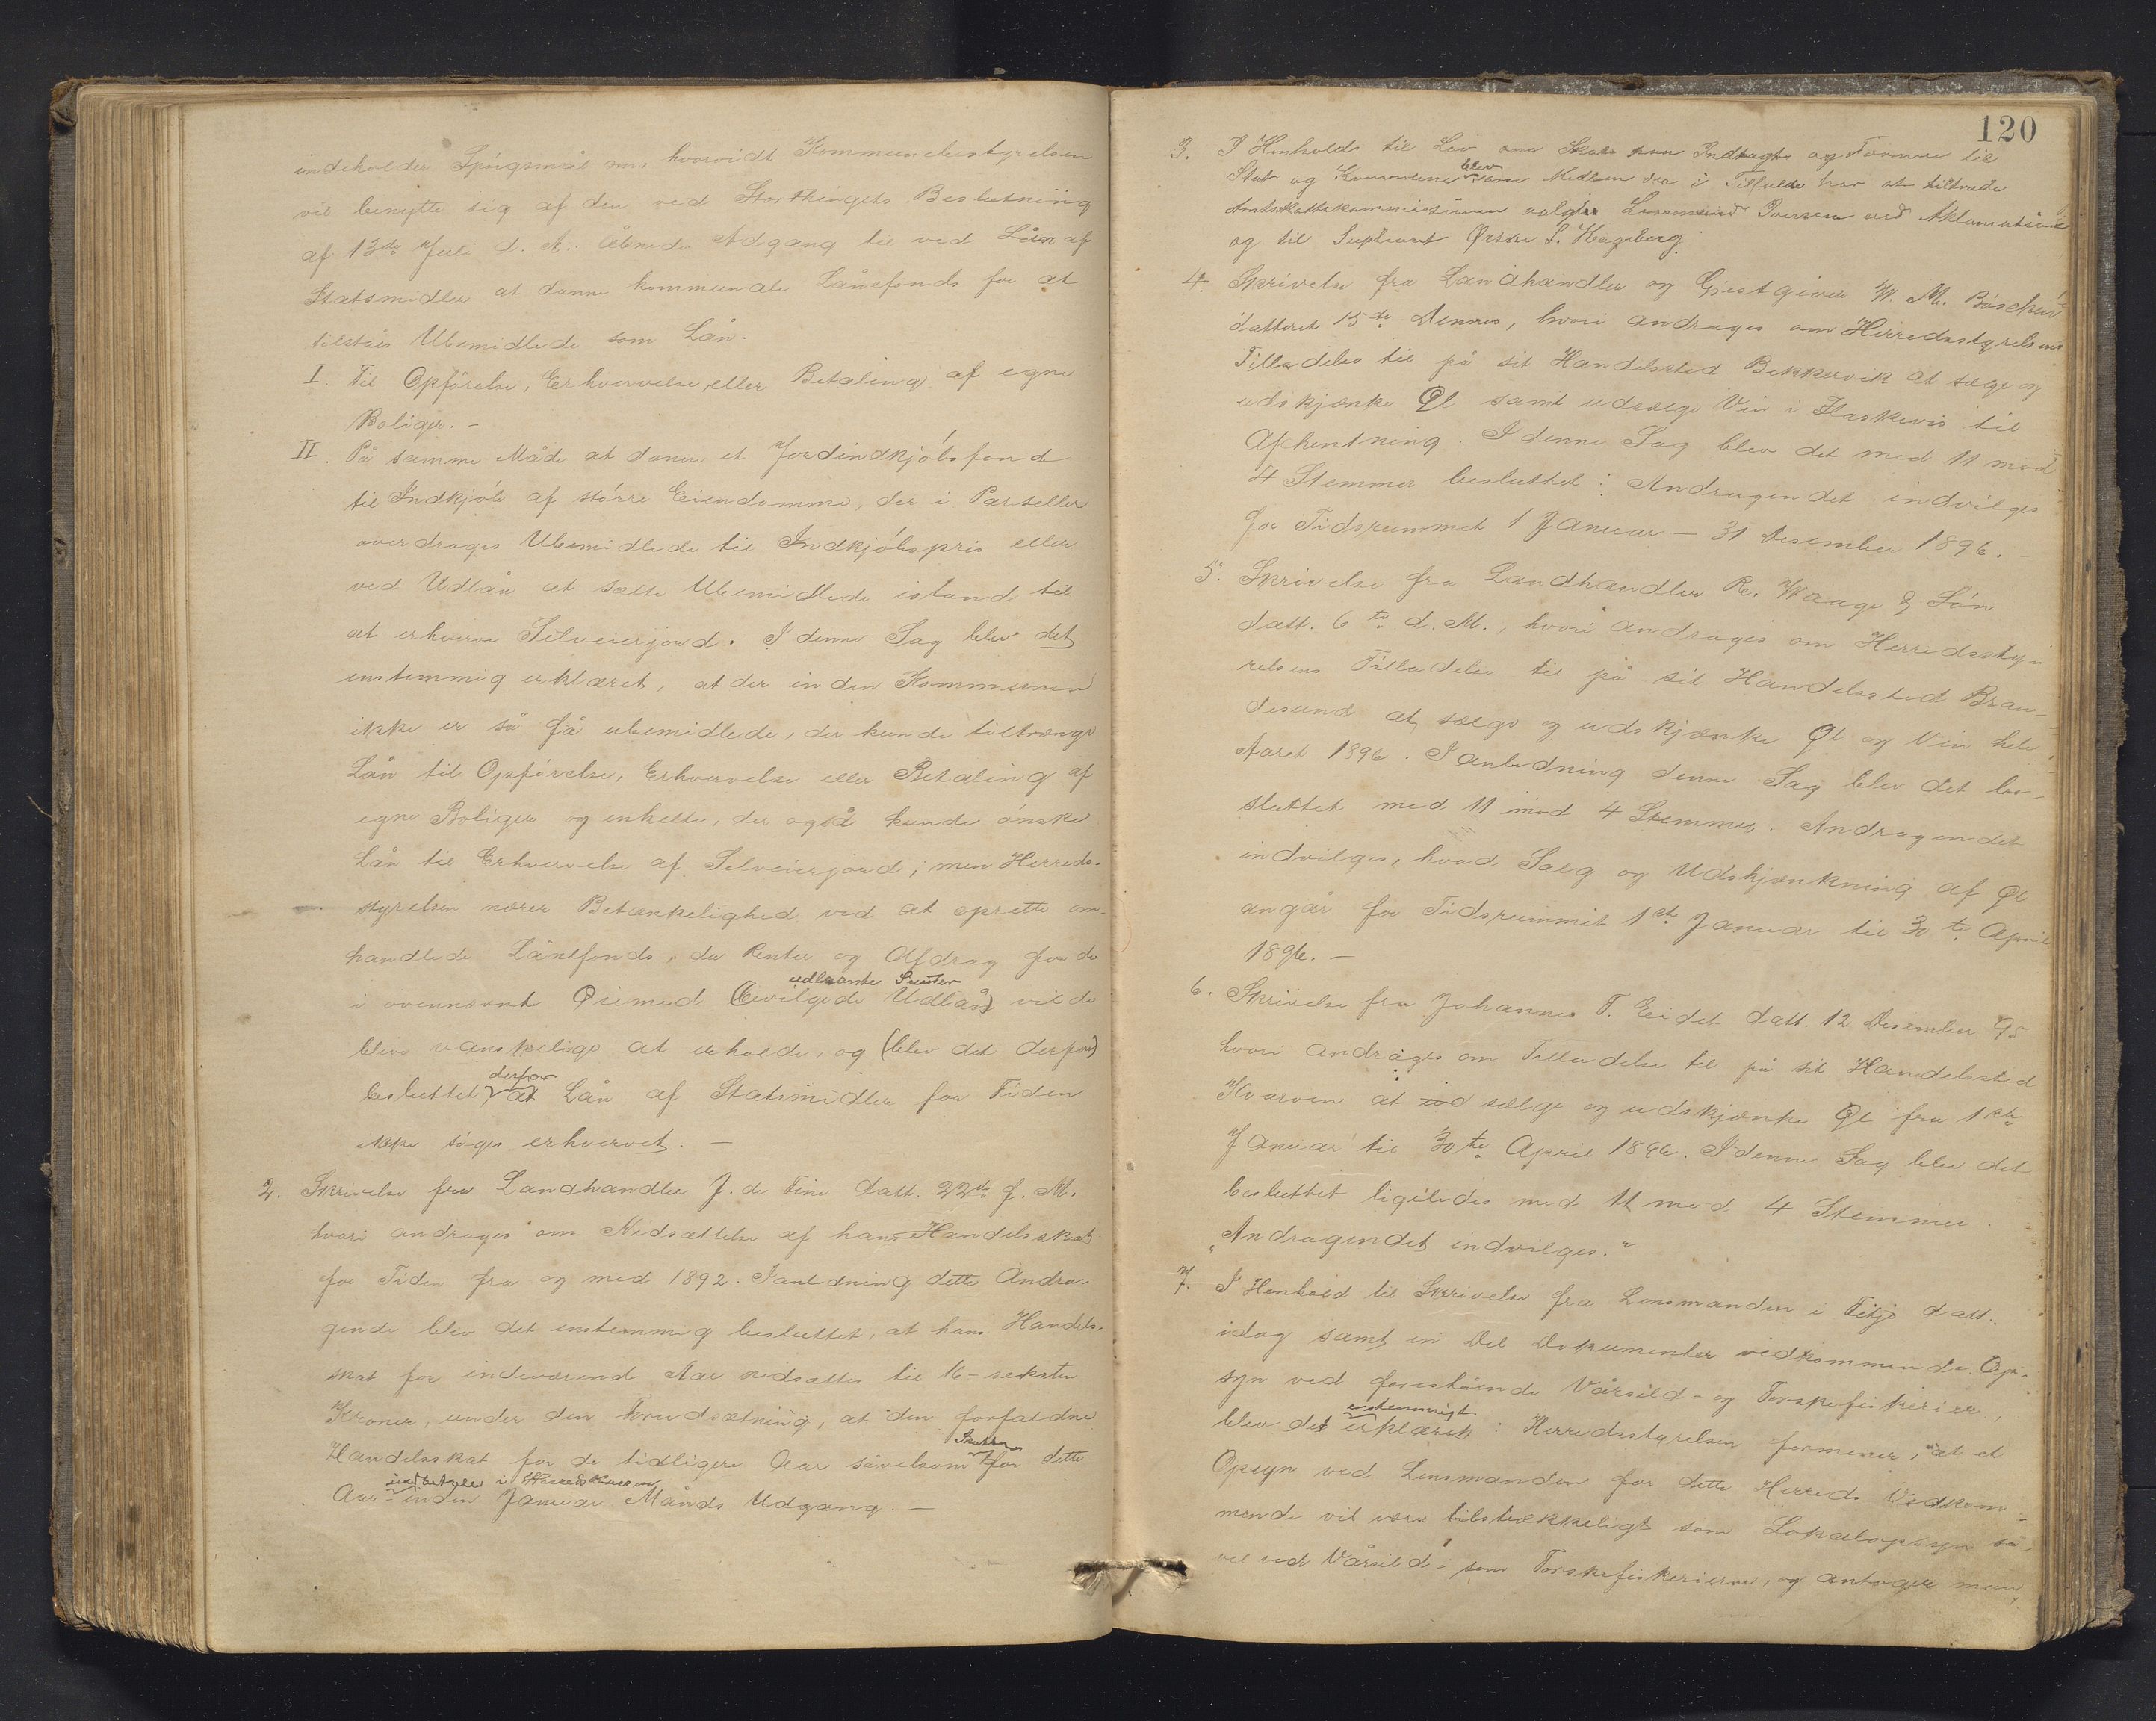 indeholder Spörgsmål om, hvorvidt Kommunebestyrelsen
vil benytte sig af den ved Storthingets Beslutning
af 13de Juli d. A. åbnede Adgang til ved Lån af
Statsmidler at danne kommunale Lånefonds for at
tilståes Ubemidlede som Lån.
I. Til Opförelse, Erhvervelse eller Betaling af egne
Boliger. –
II. På samme Måde at danne et Jordindkjöbsfond
til Indkjöb af större Eiendomme, der i Parseller
overdrages Ubemidlede til Indkjöbspris eller
ved Udlån at sætte Ubemidlede istand til
at erhverve Selveierjord. I denne Sag blev det
enstemmig erklæret, at der inden Kommunen
ikke er så få ubemidlede, der kunde tiltrænge
Lån til Opförelse, Erhvervelse eller Betaling af
egne Boliger og enkelte, der også kunde önske
Lån til Erhvervelse af Selveierjord; men Herreds-
styrelsen nærer Betænkelighed ved at oprette om-
handlede Lånefonds, da Renter og Afdrag for de
udlaante Summer
i ovennævnt Öiemed (bevilgede Udlån) vilde
blive vanskelige at erholde, og (blev det derfor)
derfor
besluttet, at Lån af Statsmidler for Tiden
ikke söges erhvervet. –
2. Skrivelse fra Landhandler J. de Fine datt. 22de f. M.
hvori andrages om Nedsættelse af hans Handelsskat
for Tiden fra og med 1892. I anledning dette Andra-
gende blev det enstemmig besluttet, at hans Handels-
skat for indeværende Aar nedsættes til 16 – seksten
Kroner, under den Forudsætning, at den forfaldne
Skatten
Handelsskat for de tidligere Aar såvelsom for dette
indbetales i Herredskassen
Aar inden Januar Måneds Udgang. –
120
3. I Henhold til Lov om Skat paa Indtægt og Formue til
blev
Stat og Kommune som Medlem der i Tilfælde har at tiltræde
Amtsskattekommissionen valgtes Lensmand Iversen ved Aklamation
og til Supleant Örjan S. Hageberg.
4. Skrivelse fra Landhandler og Gjestgiver W. M. Böschen
datteret 15de Dennes, hvori andrages om Herredsstyrelsens
Tilladelse til på sit Handelssted Bekkervik at sælge og
udskjænke Øl samt udsælge Vin i Flaskevis til
Afhentning. I denne Sag blev det med 11 mod
4 Stemmer besluttet: Andragendet indvilges
for Tidsrummet 1 Januar – 31 Desember 1896. –
5. Skrivelse fra Landhandler R. Waage & Sön
datt. 6te d. M., hvori andrages om Herredssty-
relsens Tilladelse til på sit Handelssted Bran-
desund at sælge og udskjænke Øl og Vin hele
Aaret 1896. I anledning denne Sag blev det be-
sluttet med 11 mod 4 Stemmer. Andragendet
indvilges, hvad Salg og Udskjænkning af Øl
angår for Tidsrummet 1ste Januar til 30te April
1896. –
6. Skrivelse fra Johannes T. Eidet datt. 12 Desember 95
hvori andrages om Tilladelse til på sit Handelssted
Kvarven at sælge og udskjænke Øl fra 1ste
Januar til 30te April 1896. I denne Sag blev det
besluttet ligeledes med 11 mod 4 Stemmer.
„Andragendet indvilges.“
7. I Henhold til Skrivelse fra Lensmanden i Fitje datt.
idag samt en Del Dokumenter vedkommende Op-
syn ved forestående Vårsild- og Torskefiskerier,
enstemmigt
blev det erklæret: Herredsstyrelsen formener, at et
Opsyn ved Lensmanden for dette Herreds Vedkom-
mende vil være tilstrækkeligt som Lokalopsyn så-
vel ved Vårsild- som Torskefiskerierne, og antager man,